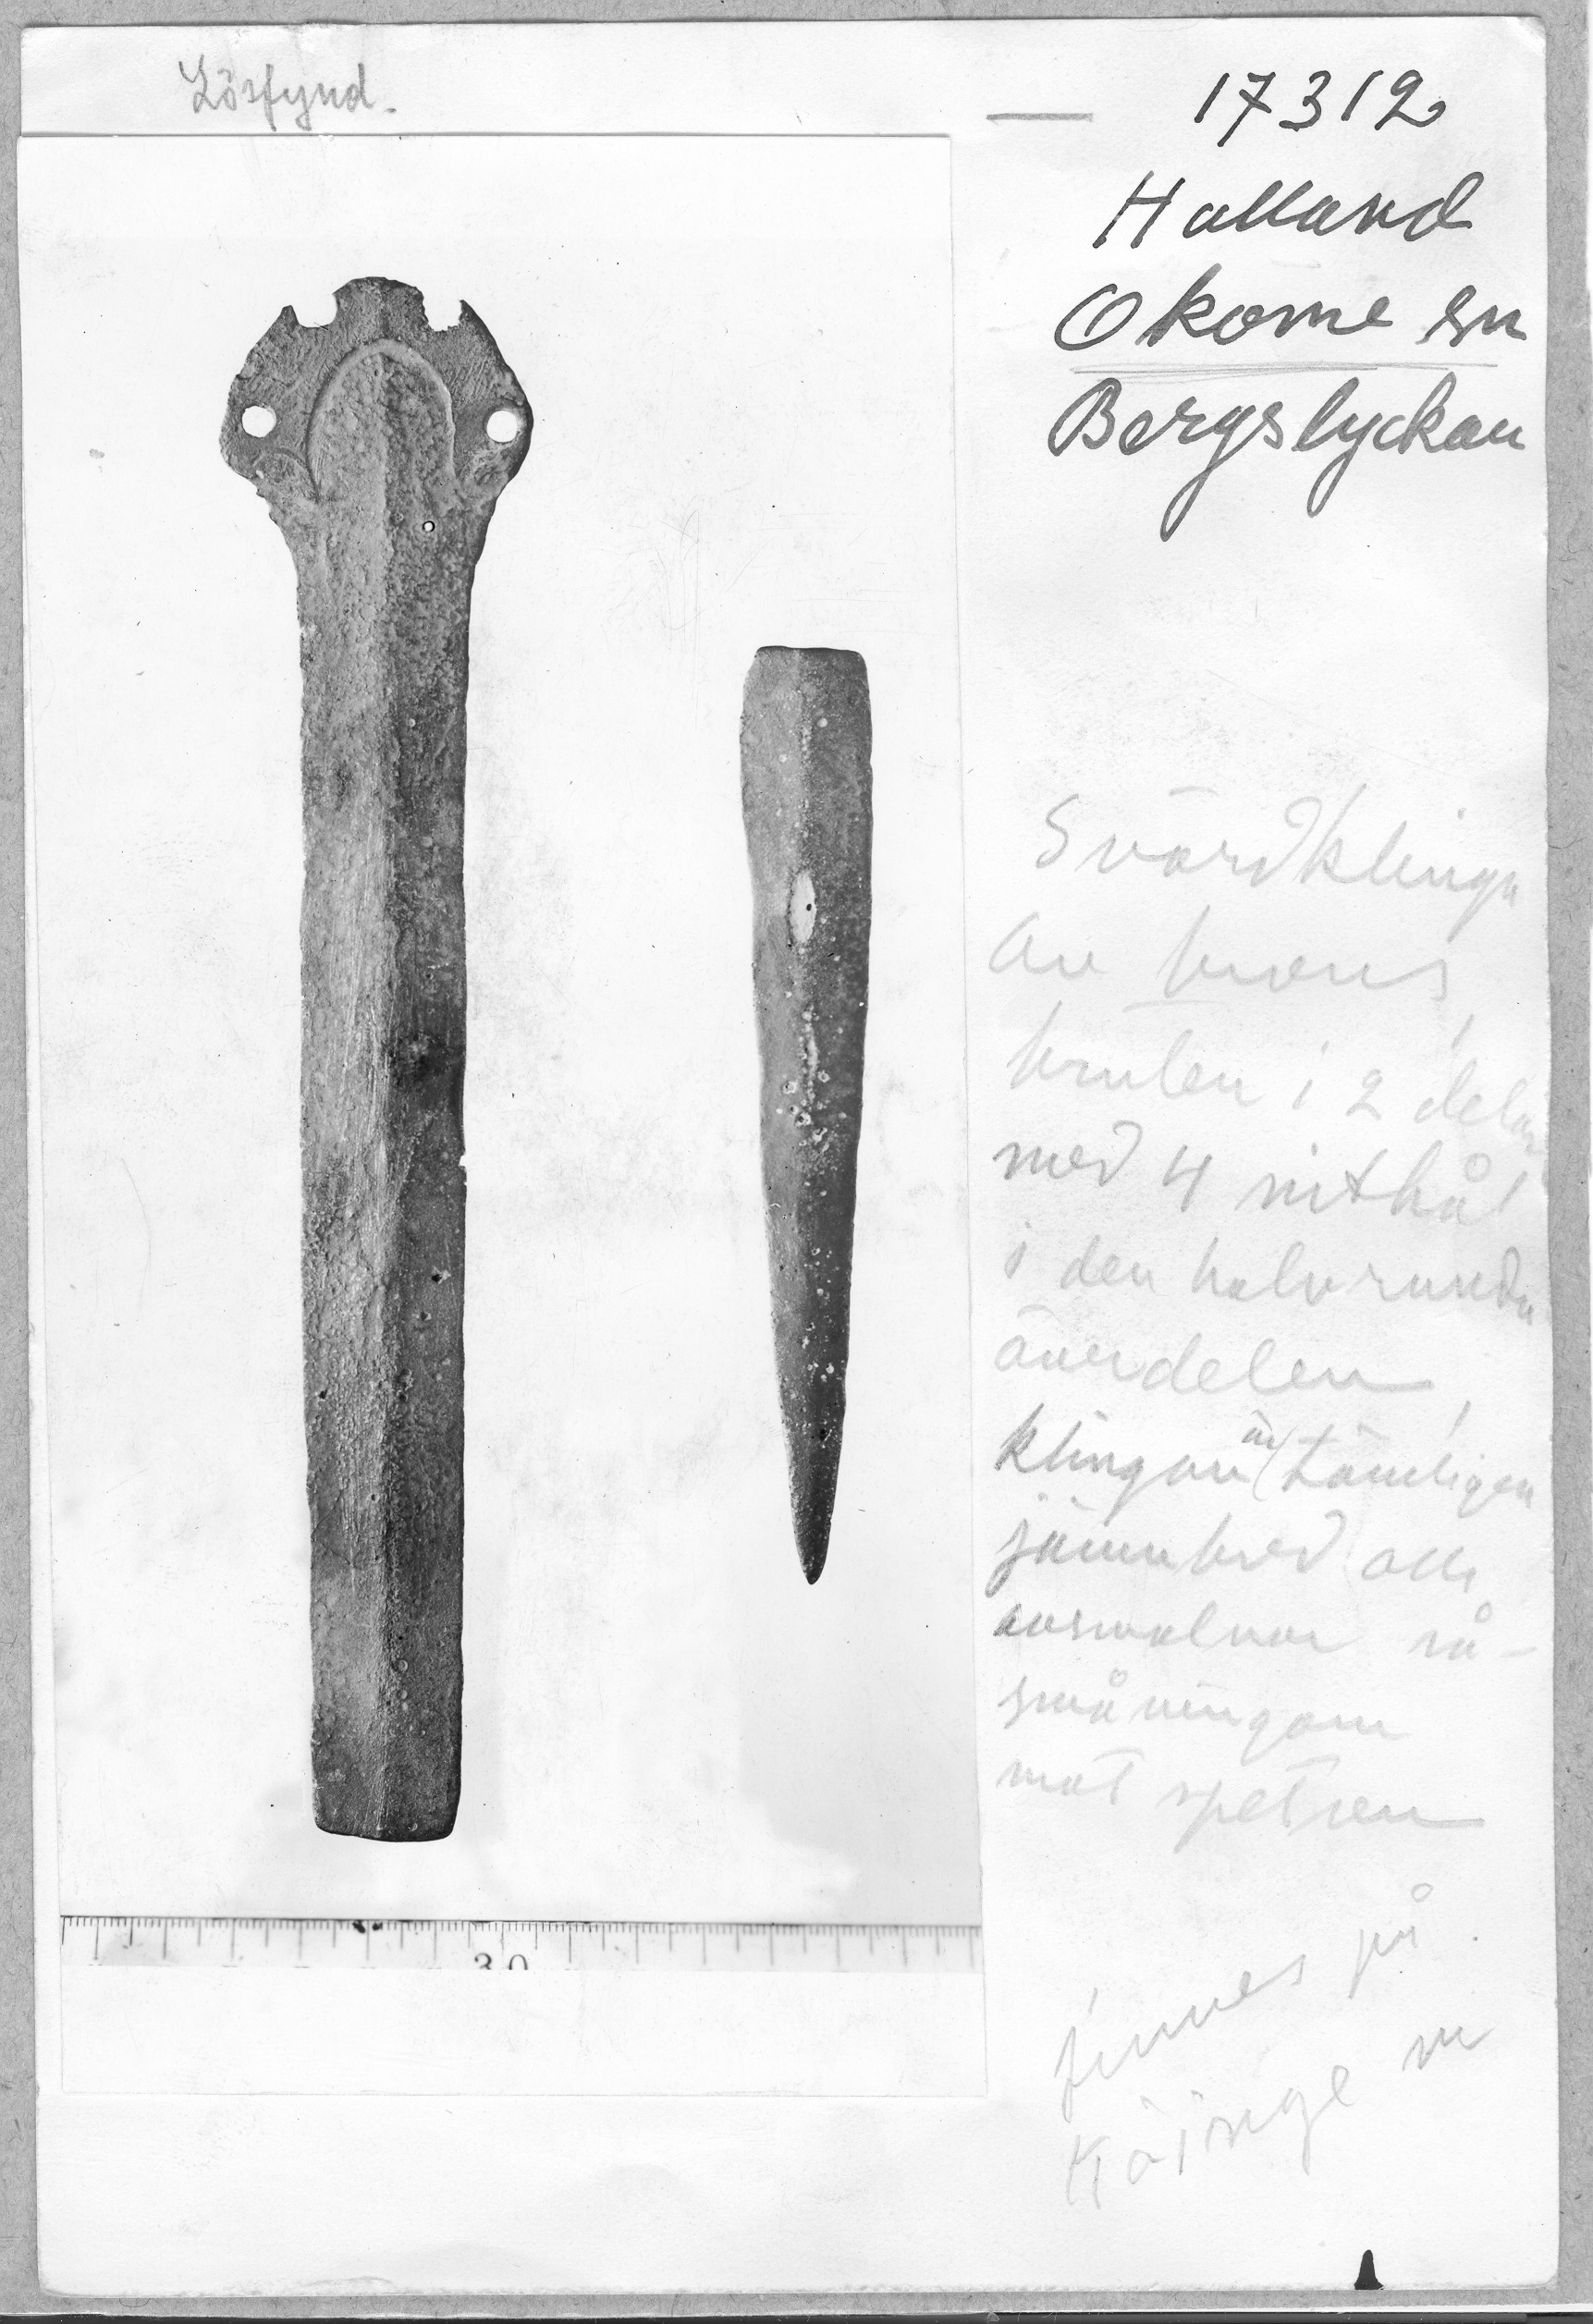 Lösfynd.
— 17312
Halland
Okome sn
Bergslyckan
Svärdklinga
av brons
bruten i 2 delar
med 4 nithål
i den halvrunda
överdelen
klingan är tämligen
jämnbred och
avsmalnar så-
småningom
mot spetsen
finnes på
Köinge
30